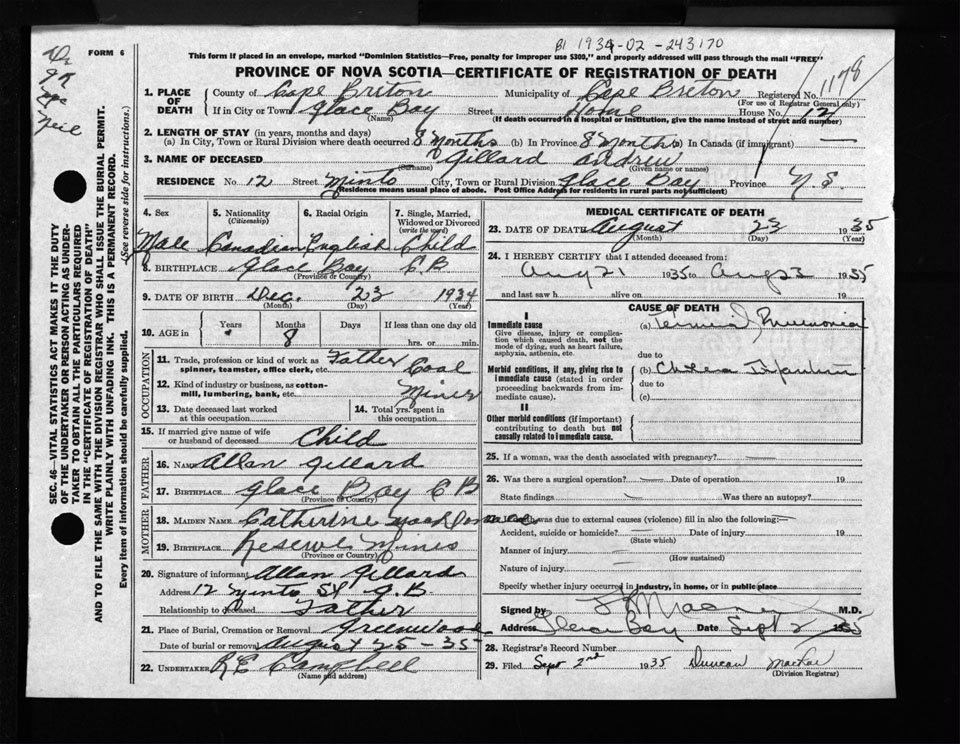 B1 1934-02-243170
FORM 6
This form if placed in an envelope, marked "Dominion Statistics—Free, penalty for improper use $300," and properly addressed will pass through the mail "FREE"
PROVINCE OF NOVA SCOTIA—CERTIFICATE OF REGISTRATION OF DEATH
1178
1. PLACE OF DEATH
County of Cape Briton Municipality of Cape Breton Registered No.
(For use of Registrar General only)
If in City or Town Glace Bay Street Home House No. 12
(Name) (If death occurred in a hospital or institution, give the name instead of street and number)
2. LENGTH OF STAY (in years, months and days)
(a) In City, Town or Rural Division where death occurred 8 months (b) In Province 8 months (c) In Canada (if immigrant) —
3. NAME OF DECEASED Gillard Andrew
(Surname) (Given name or names)
RESIDENCE No. 12 Street Minto City, Town or Rural Division Glace Bay Province N.S.
(Residence means usual place of abode. Post Office Address for residents in rural parts not sufficient)
4. Sex 5. Nationality 6. Racial Origin 7. Single, Married, Widowed or Divorced
(Citizenship) (write the word)
Male Canadian English Child
8. BIRTHPLACE Glace Bay C B
(Province or Country)
9. DATE OF BIRTH Dec. 23 1934
(Month) (Day) (Year)
10. AGE in Years Months Days If less than one day old
8 hrs. or min.
OCCUPATION
11. Trade, profession or kind of work as spinner, teamster, office clerk, etc. Father Coal
12. Kind of industry or business, as cotton-mill, lumbering, bank, etc. Miner
13. Date deceased last worked at this occupation
14. Total yrs. spent in this occupation
15. If married give name of wife or husband of deceased Child
FATHER
16. NAME Allan Gillard
17. BIRTHPLACE Glace Bay C B
(Province or Country)
MOTHER
18. MAIDEN NAME Catherine MacDonald
19. BIRTHPLACE Reserve Mines
(Province or Country)
20. Signature of informant Allan Gillard
Address 12 Minto St G.B
Relationship to deceased Father
21. Place of Burial, Cremation or Removal Greenwood
Date of burial or removal August 25-35
22. UNDERTAKER R E Campbell
(Name and address)
MEDICAL CERTIFICATE OF DEATH
23. DATE OF DEATH August 23 1935
(Month) (Day) (Year)
24. I HEREBY CERTIFY that I attended deceased from:
Aug 21 1935 to Aug 23 1935
and last saw h alive on 19
CAUSE OF DEATH
I
Immediate cause
Give disease, injury or complication which caused death, not the mode of dying, such as heart failure, asphyxia, asthenia, etc.
(a) Terminal Pneumonia
due to
Morbid conditions, if any, giving rise to immediate cause (stated in order proceeding backwards from immediate cause).
(b) Cholera Infantum
due to
(c)
II
Other morbid conditions (if important) contributing to death but not causally related to immediate cause.
25. If a woman, was the death associated with pregnancy?
26. Was there a surgical operation? Date of operation 19
State findings Was there an autopsy?
27. If death was due to external causes (violence) fill in also the following:—
Accident, suicide or homicide? Date of injury 19
(State which)
Manner of injury
(How sustained)
Nature of injury
Specify whether injury occurred in industry, in home, or in public place
Signed by M.D.
Address Glace Bay Date Sept 2 1935
28. Registrar's Record Number
29. Filed Sept 2nd 1935 Duncan MacRae
(Division Registrar)
SEC. 46—VITAL STATISTICS ACT MAKES IT THE DUTY
OF THE UNDERTAKER OR PERSON ACTING AS UNDER-
TAKER TO OBTAIN ALL THE PARTICULARS REQUIRED
IN THE "CERTIFICATE OF REGISTRATION OF DEATH"
AND TO FILE THE SAME WITH THE DIVISION REGISTRAR WHO SHALL ISSUE THE BURIAL PERMIT.
WRITE PLAINLY WITH UNFADING INK. THIS IS A PERMANENT RECORD.
Every item of information should be carefully supplied. (See reverse side for instructions.)